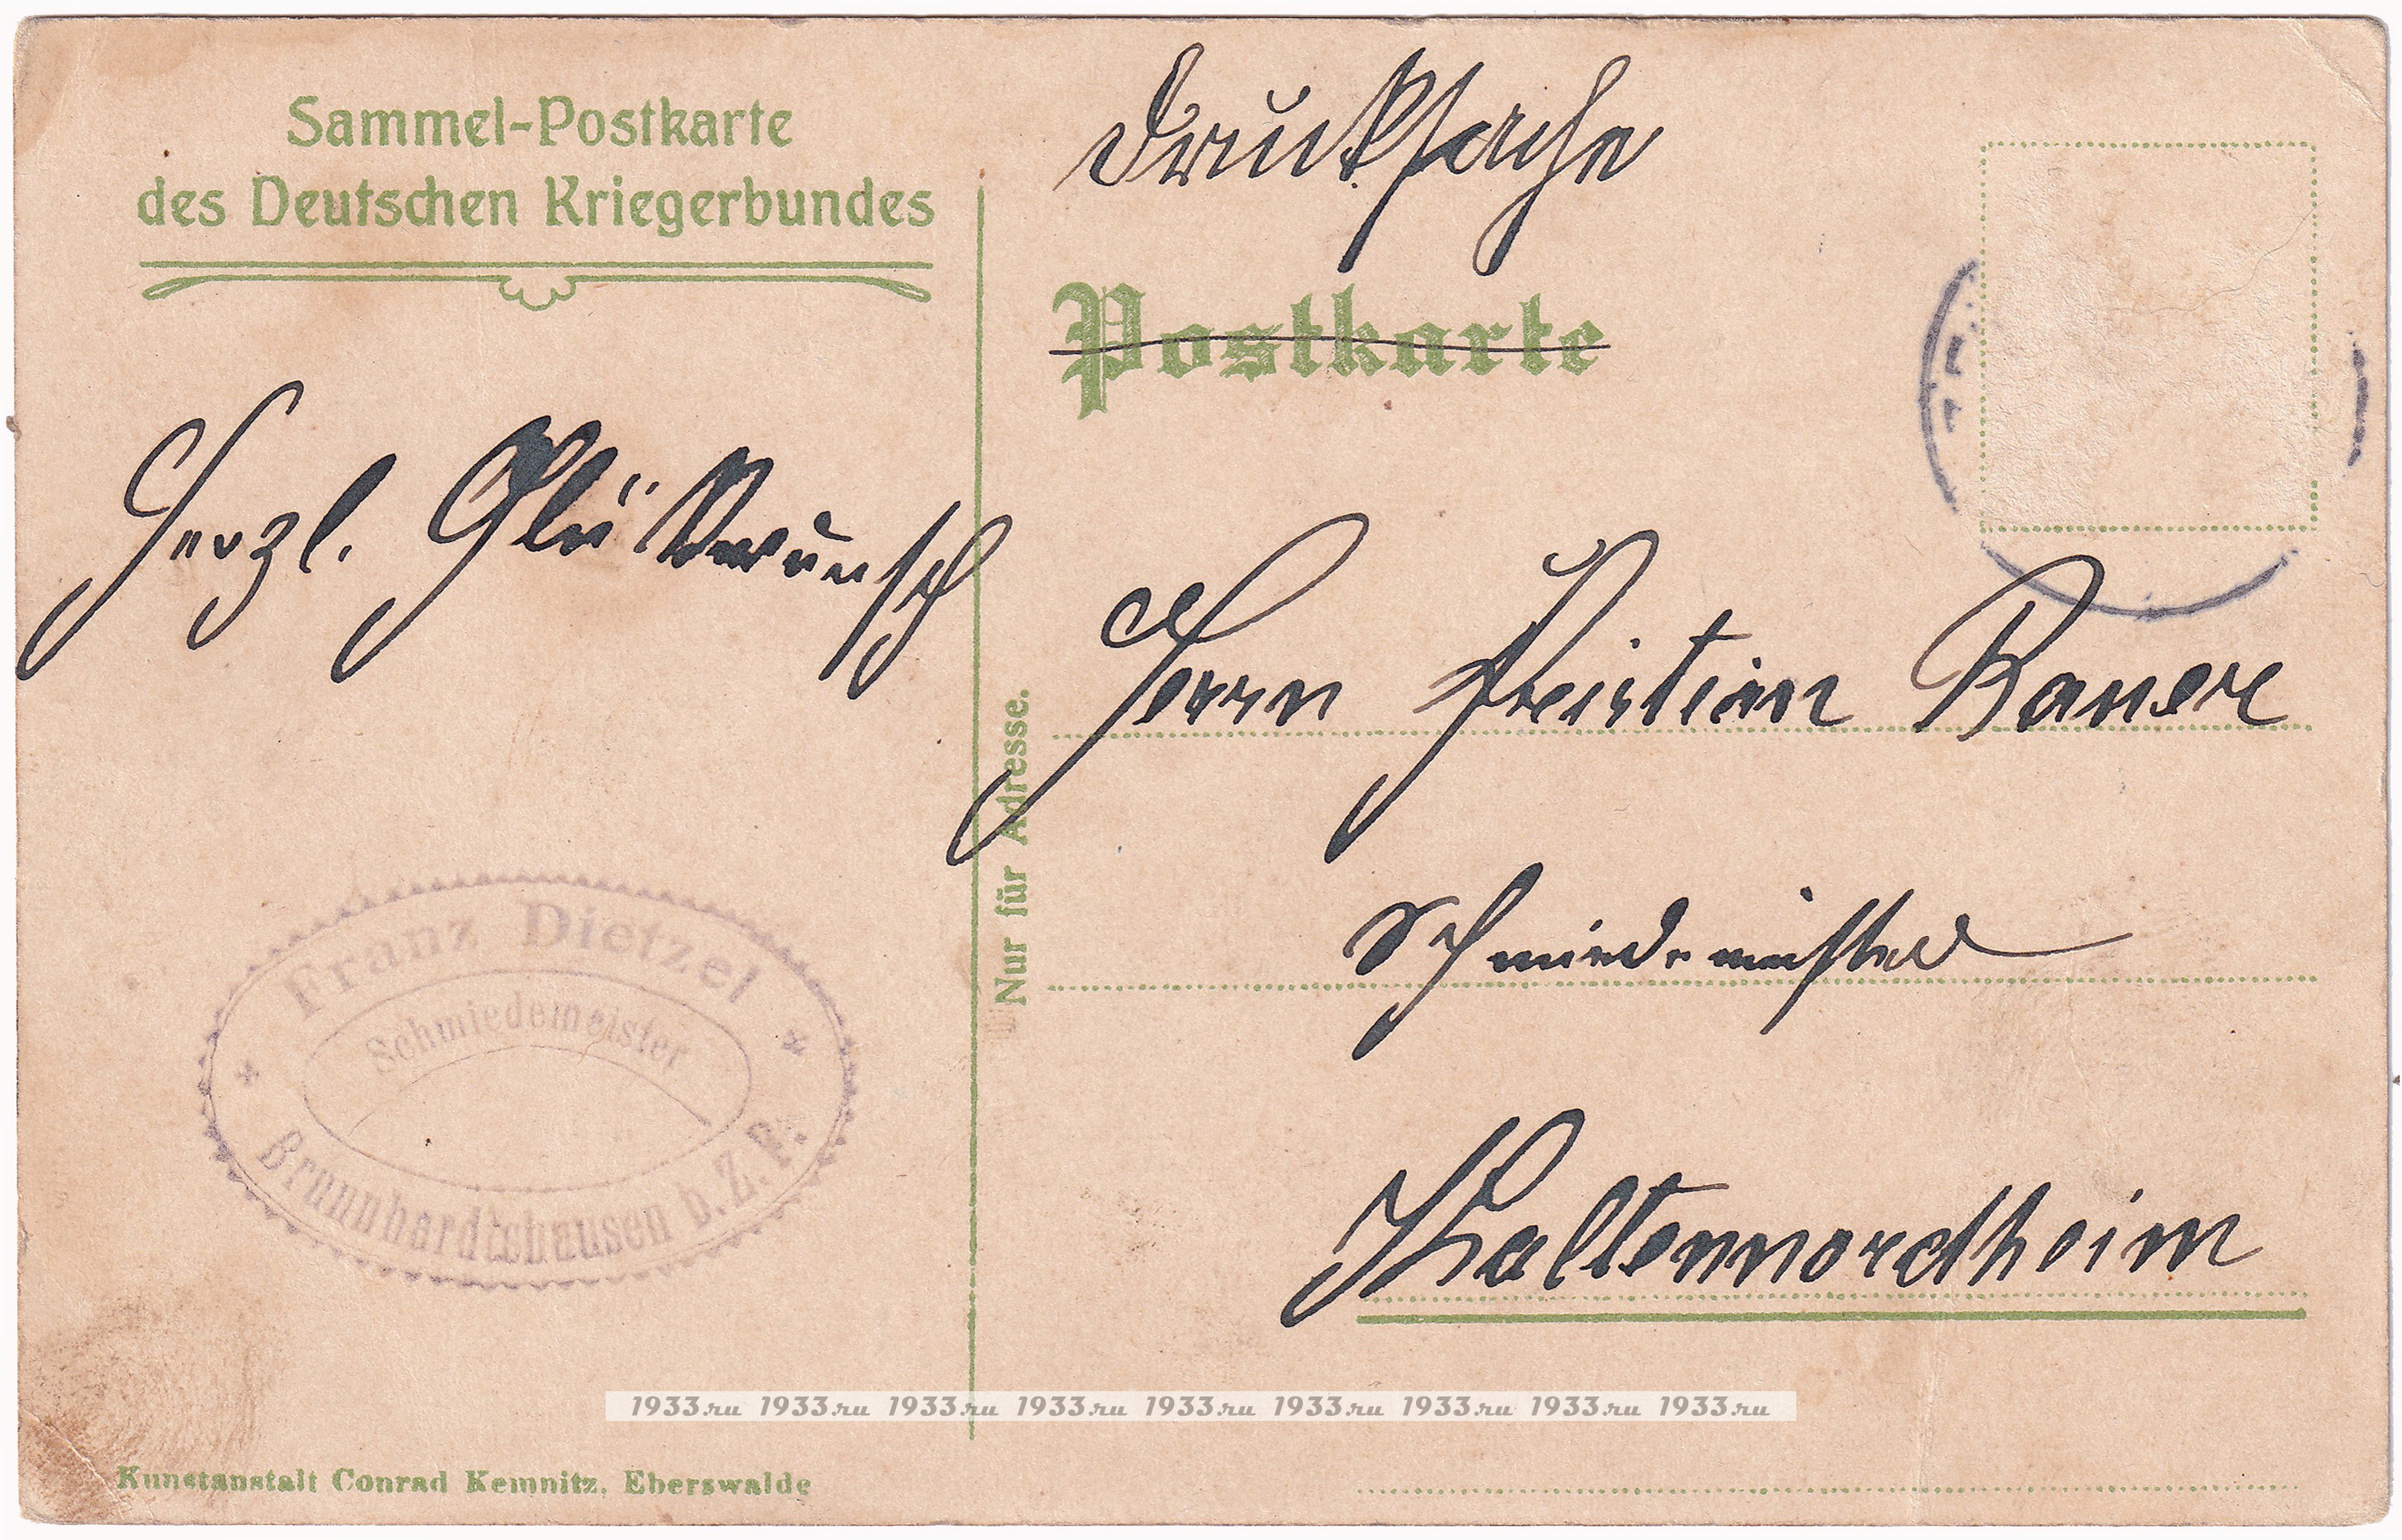 Sammel-Postkarte
des Deutschen Kriegerbundes
Drucksache
Postkarte
Herzl. Glückwunsch
Nur für Adresse.
Herrn Kristian Bauer
Schmiedemeister
Kaltennordheim
Franz Dietzel
Schmiedemeister
Brunnhardtshausen b. Z. Rh.
1933.ru 1933.ru 1933.ru 1933.ru 1933.ru 1933.ru 1933.ru 1933.ru 1933.ru
Kunstanstalt Conrad Kemnitz, Eberswalde